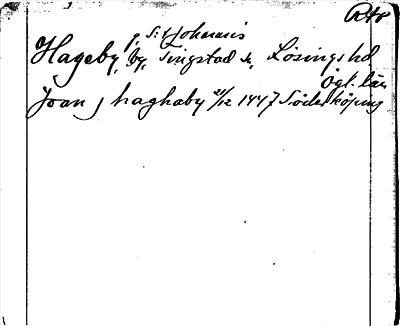 RAp
f. S:t Johannis
Hageby, by, Tingstad sn, Lösings hd
Ögl. län
Joan j haghaby 21/12 1447 Söderköping